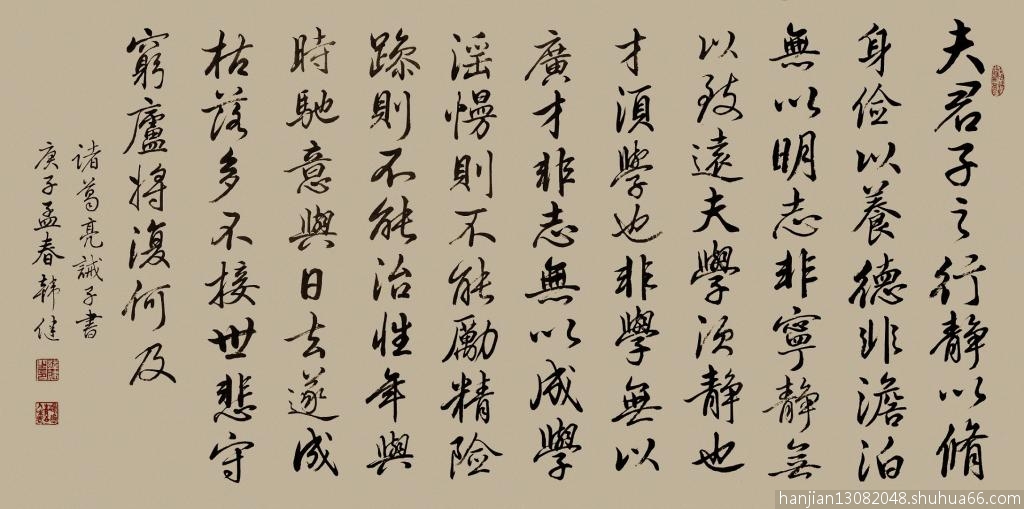 夫君子之行静以脩
身俭以養德非澹泊
無以明志非寧静無
以致遠夫學須静也
才須學也非學無以
廣才非志無以成學
滛慢則不能勵精險
躁則不能治性年與
時馳意與日去遂成
枯落多不接世悲守
窮廬將復何及
諸葛亮誡子書
庚子孟春韩健
hanjian13082048.shuhua66.com